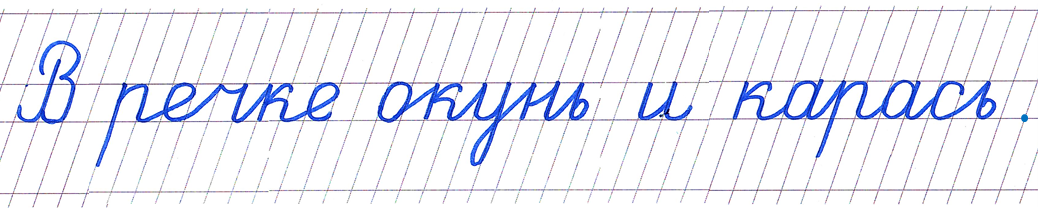 В речке окунь и карась.